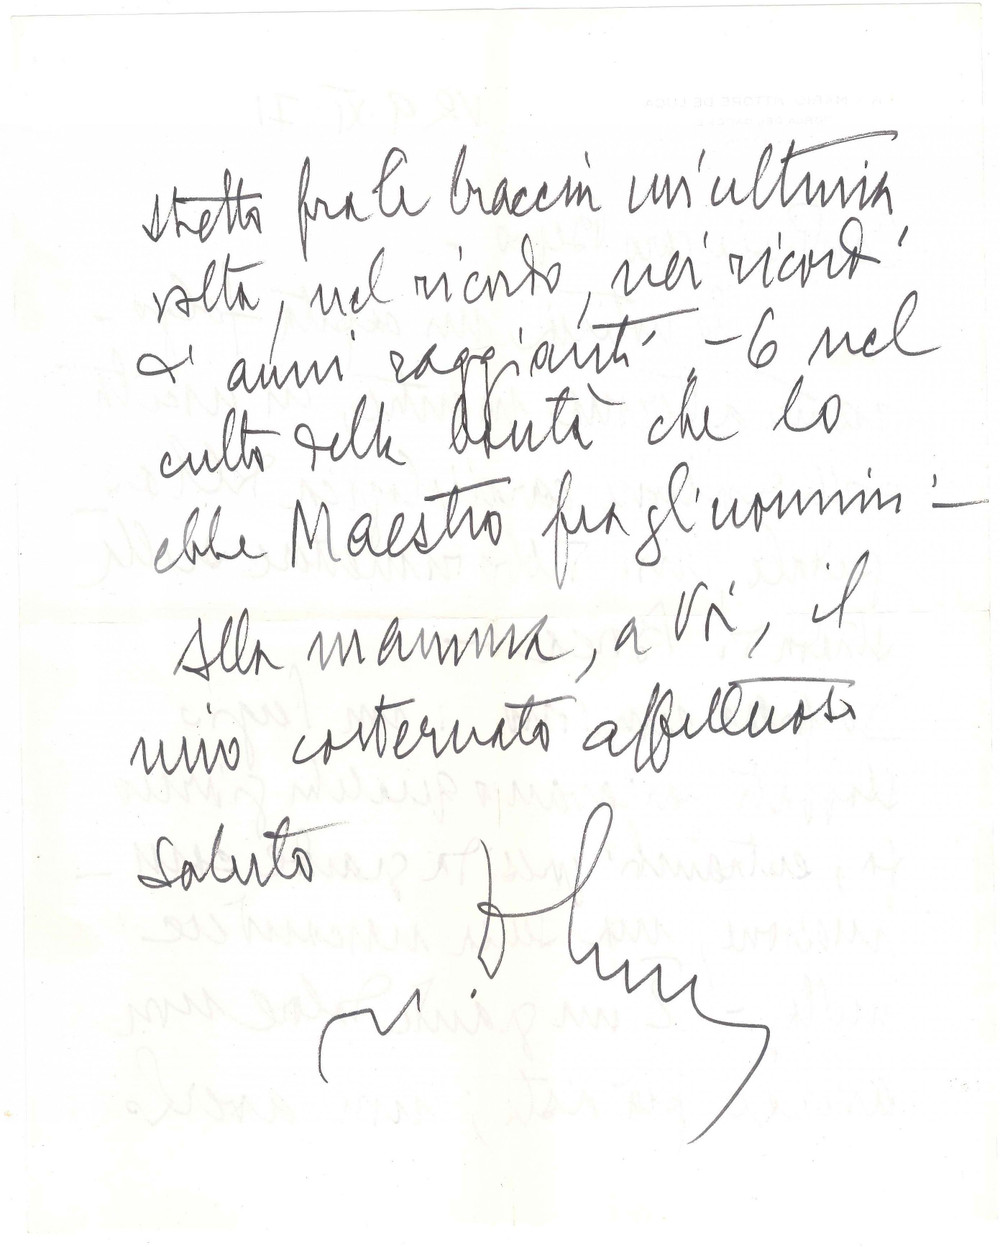 stretto fra le braccia un'ultima
volta, nel ricordo, nei ricordi
d'anni raggianti, - e nel
culto della bontà che lo
ebbe Maestro fra gli uomini -
Alla mamma, a Voi, il
mio costernato affettuoso
saluto